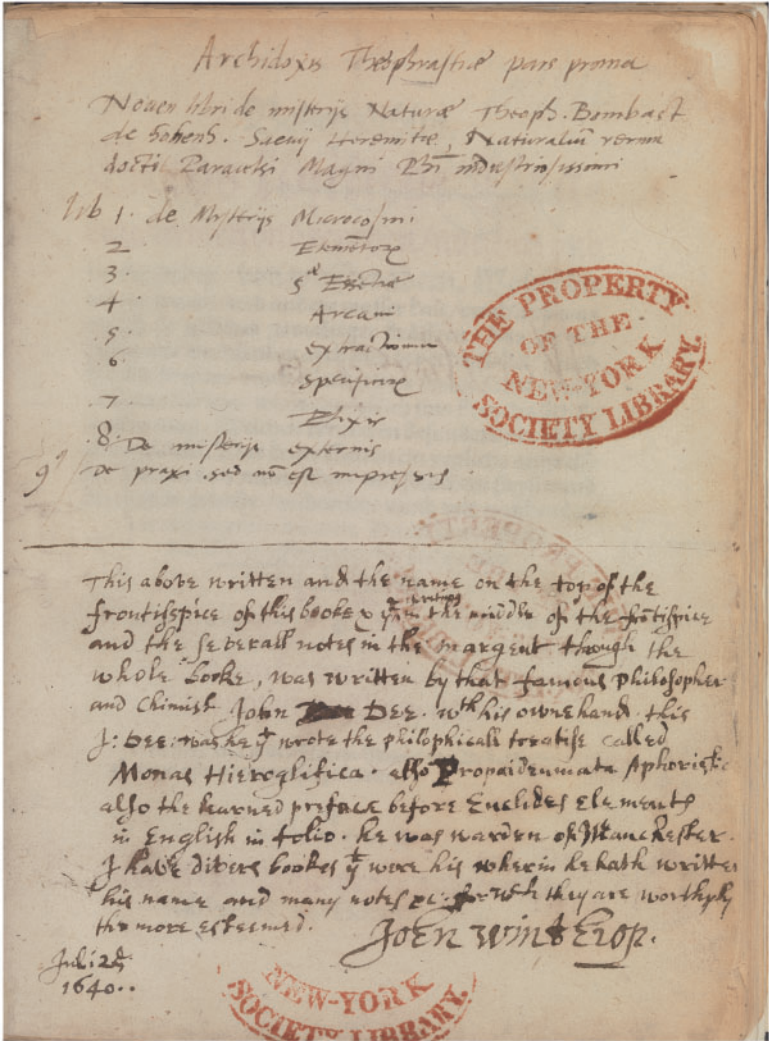 Archidoxis Theophrastiæ pars prima
Novem libri de misterijs Naturæ Theoph. Bombast
de Hohenh. Suevij Heremitæ, Naturaliũ rerum
docti Paracelsi Magni Phi industriosissimi
lib 1. de Mysterijs Microcosmi
2 Elemẽtorꝝ
3. 5æ Essẽtiæ
4 Arcani
5. extractionum
6. specificorꝝ
7 Elixir
8. De misterijs externis
9 De praxi sed nõ est impressus
THE PROPERTY
OF THE
NEW-YORK
SOCIETY LIBRARY.
This above written and the name on the top of the
frontispice of this booke & yt writing in the middle of the frõtispice
and the severall notes in the margent through the
whole booke, was written by that famous philosopher
and Chimist John Dee. wth his owne hand. this
J: Dee: was he yt wrote the philosophicall treatise called
Monas Hieroglifica. also Propaideumata Aphoristic
also the learned preface before Euclides elements
in English in folio. he was warden of Manchester.
I have divers bookes yt were his wherin he hath written
his name and many notes for wch they are worthyly
the more esteemed.
John Winthrop.
Juli: 25
1640..
NEW-YORK
SOCIETY LIBRARY.